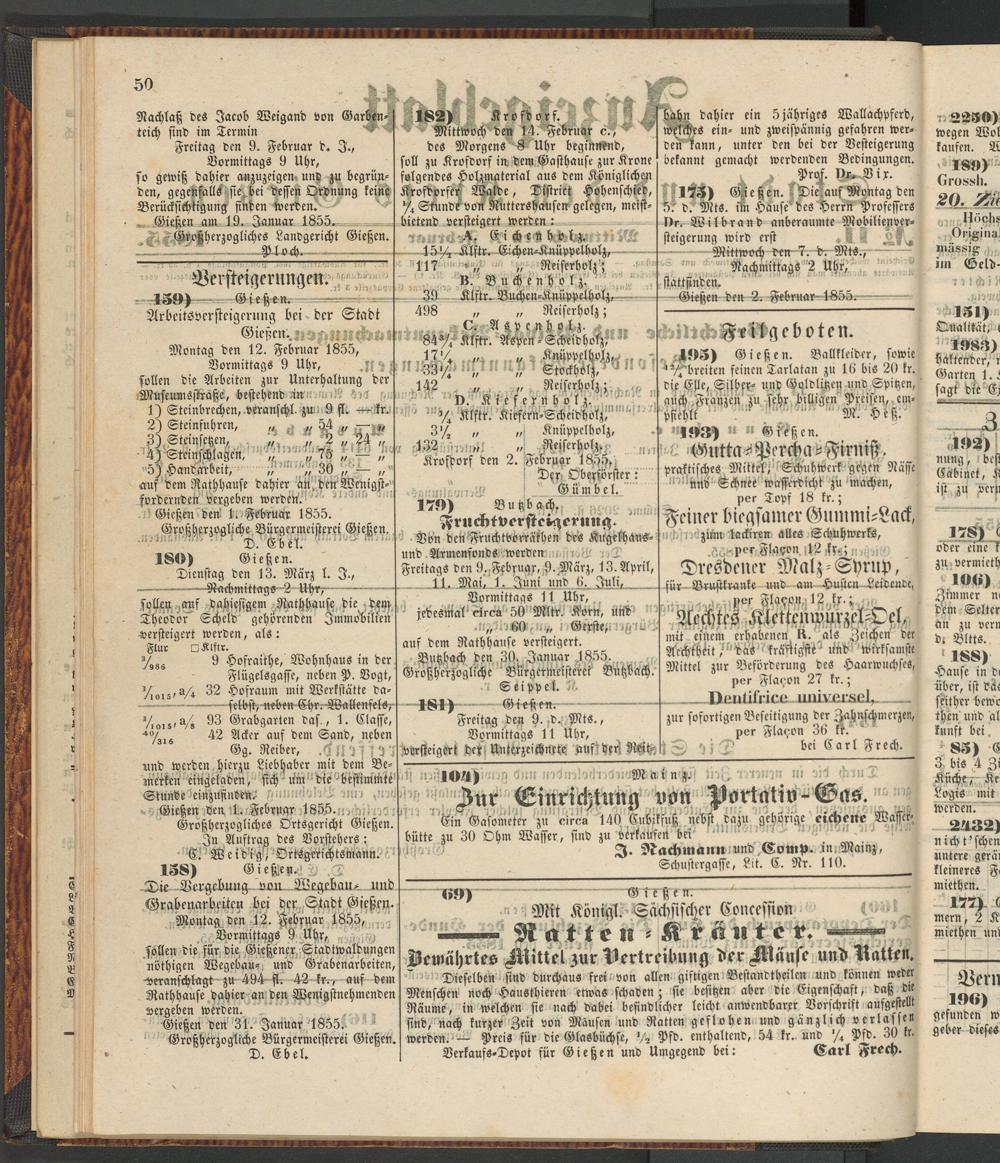 50
Nachlaß des Jacob Weigand von Garben-
teich sind im Termin
Freitag den 9. Februar d. J.,
Vormittags 9 Uhr,
so gewiß dahier anzuzeigen und zu begrün-
den, gegenfalls sie bei dessen Ordnung keine
Berücksichtigung finden werden.
Gießen am 19. Januar 1855.
Großherzogliches Landgericht Gießen.
Ploch.
Versteigerungen.
159) Gießen.
Arbeitsversteigerung bei der Stadt
Gießen.
Montag den 12. Februar 1855,
Vormittags 9 Uhr,
sollen die Arbeiten zur Unterhaltung der
Museumsstraße, bestehend in
1) Steinbrechen, veranschl. zu 9 fl. — kr.
2) Steinfuhren, „ „ 54 „ — „
3) Steinsetzen, „ „ 2 „ 24 „
4) Steinschlagen, „ „ 75 „ — „
5) Handarbeit, „ „ 30 „ — „
auf dem Rathhause dahier an den Wenigst-
fordernden vergeben werden.
Gießen den 1. Februar 1855.
Großherzogliche Bürgermeisterei Gießen.
D. Ebel.
180) Gießen.
Dienstag den 13. März l. J.,
Nachmittags 2 Uhr,
sollen auf dahiesigem Rathhause die dem
Theodor Scheld gehörenden Immobilien
versteigert werden, als:
Flur □Klftr.
3/986 9 Hofraithe, Wohnhaus in der
Flügelsgasse, neben P. Vogt,
1/1015, a/4 32 Hofraum mit Werkstätte da-
selbst, neben Chr. Wallenfels,
1/1015, a/8 93 Grabgarten das., 1. Classe,
40/316 42 Acker auf dem Sand, neben
Gg. Reiber,
und werden hierzu Liebhaber mit dem Be-
merken eingeladen, sich um die bestimmte
Stunde einzufinden.
Gießen den 1. Februar 1855.
Großherzogliches Ortsgericht Gießen.
In Auftrag des Vorstehers:
C. Weidig, Ortsgerichtsmann.
158) Gießen.
Die Vergebung von Wegebau- und
Grabenarbeiten bei der Stadt Gießen.
Montag den 12. Februar 1855,
Vormittags 9 Uhr,
sollen die für die Gießener Stadtwaldungen
nöthigen Wegebau- und Grabenarbeiten,
veranschlagt zu 494 fl. 42 kr., auf dem
Rathhause dahier an den Wenigstnehmenden
vergeben werden.
Gießen den 31. Januar 1855.
Großherzogliche Bürgermeisterei Gießen.
D. Ebel.
182) Krofdorf.
Mittwoch den 14. Februar c.,
des Morgens 8 Uhr beginnend,
soll zu Krofdorf in dem Gasthause zur Krone
folgendes Holzmaterial aus dem Königlichen
Krofdorfer Walde, District Hohenschied,
1/4 Stunde von Ruttershausen gelegen, meist-
bietend versteigert werden:
A. Eichenholz.
15 1/4 Klftr. Eichen-Knüppelholz,
117 „ „ Reiserholz;
B. Buchenholz.
39 Klftr. Buchen-Knüppelholz,
498 „ „ Reiserholz;
C. Aspenholz.
84 3/4 Klftr. Aspen-Scheidholz,
17 1/4 „ „ Knüppelholz,
33 1/4 „ „ Stockholz,
142 „ „ Reiserholz;
D. Kiefernholz.
3/4 Klftr. Kiefern-Scheidholz,
3 1/2 „ „ Knüppelholz,
132 „ „ Reiserholz.
Krofdorf den 2. Februar 1855.
Der Oberförster:
Gümbel.
179) Butzbach.
Fruchtversteigerung.
Von den Fruchtvorräthen des Kugelhaus-
und Armenfonds werden
Freitags den 9. Februar, 9. März, 13. April,
11. Mai, 1. Juni und 6. Juli,
Vormittags 11 Uhr,
jedesmal circa 50 Mltr. Korn, und
„ „ 60 „ Gerste,
auf dem Rathhause versteigert.
Butzbach den 30. Januar 1855.
Großherzogliche Bürgermeisterei Butzbach.
Seippel.
181) Gießen.
Freitag den 9. d. Mts.,
Vormittags 11 Uhr,
versteigert der Unterzeichnete auf der Reit-
bahn dahier ein 5jähriges Wallachpferd,
welches ein- und zweispännig gefahren wer-
den kann, unter den bei der Versteigerung
bekannt gemacht werdenden Bedingungen.
Prof. Dr. Vix.
175) Gießen. Die auf Montag den
5. d. Mts. im Hause des Herrn Professers
Dr. Wilbrand anberaumte Mobilienver-
steigerung wird erst
Mittwoch den 7. d. Mts.,
Nachmittags 2 Uhr,
stattfinden.
Gießen den 2. Februar 1855.
Feilgeboten.
195) Gießen. Ballkleider, sowie
breiten feinen Tarlatan zu 16 bis 20 kr.
die Elle, Silber- und Goldlitzen und Spitzen,
auch Franzen zu sehr billigen Preisen, em-
pfiehlt M. Heß.
193) Gießen.
Gutta-Percha-Firniß,
praktisches Mittel, Schuhwerk gegen Nässe
und Schnee wasserdicht zu machen,
per Topf 18 kr.;
Feiner biegsamer Gummi-Lack,
zum lackiren alles Schuhwerks,
per Flaçon 12 kr.;
Dresdener Malz-Syrup,
für Brustkranke und am Husten Leidende,
per Flaçon 12 kr.;
Aechtes Klettenwurzel-Oel,
mit einem erhabenen R. als Zeichen der
Aechtheit, das kräftigste und wirksamste
Mittel zur Beförderung des Haarwuchses,
per Flaçon 27 kr.;
Dentifrice universel,
zur sofortigen Beseitigung der Zahnschmerzen,
per Flaçon 36 kr.
bei Carl Frech.
104) Mainz.
Zur Einrichtung von Portativ-Gas.
Ein Gasometer zu circa 140 Cubikfuß nebst dazu gehörige eichene Wasser-
bütte zu 30 Ohm Wasser, sind zu verkaufen bei
J. Nachmann und Comp. in Mainz,
Schustergasse, Lit. C. Nr. 110.
69) Gießen.
Mit Königl. Sächsischer Concession
Ratten-Kräuter.
Bewährtes Mittel zur Vertreibung der Mäuse und Ratten.
Dieselben sind durchaus frei von allen giftigen Bestandtheilen und können weder
Menschen noch Hausthieren etwas schaden; sie besitzen aber die Eigenschaft, daß die
Räume, in welchen sie nach dabei befindlicher leicht anwendbarer Vorschrift aufgestellt
sind, nach kurzer Zeit von Mäusen und Ratten geflohen und gänzlich verlassen
werden. — Preis für die Glasbüchse, 1/2 Pfd. enthaltend, 54 kr. und 1/4 Pfd. 30 kr.
Verkaufs-Depot für Gießen und Umgegend bei: Carl Frech.
2250)
wegen
kaufen.
189)
Grossh.
20.
Höchs
Origina
mässig
im Geld-
151)
Qualität,
1983)
haltender,
Garten 1.
sagt die
192)
nung, best
Cabinet,
ist zu
178)
oder eine
zu vermieth
106)
Zimmer
dem Selter
an zu verm
d. Bltts.
188)
Hause in
über, ist
seither bewo
then und
kunft bei
85)
3 bis 4
Küche,
Logis mit
werden.
2432)
nicht'schen
untere
kleineres
miethen.
177)
mern, 2
miethen
196)
gefunden
geber dieses